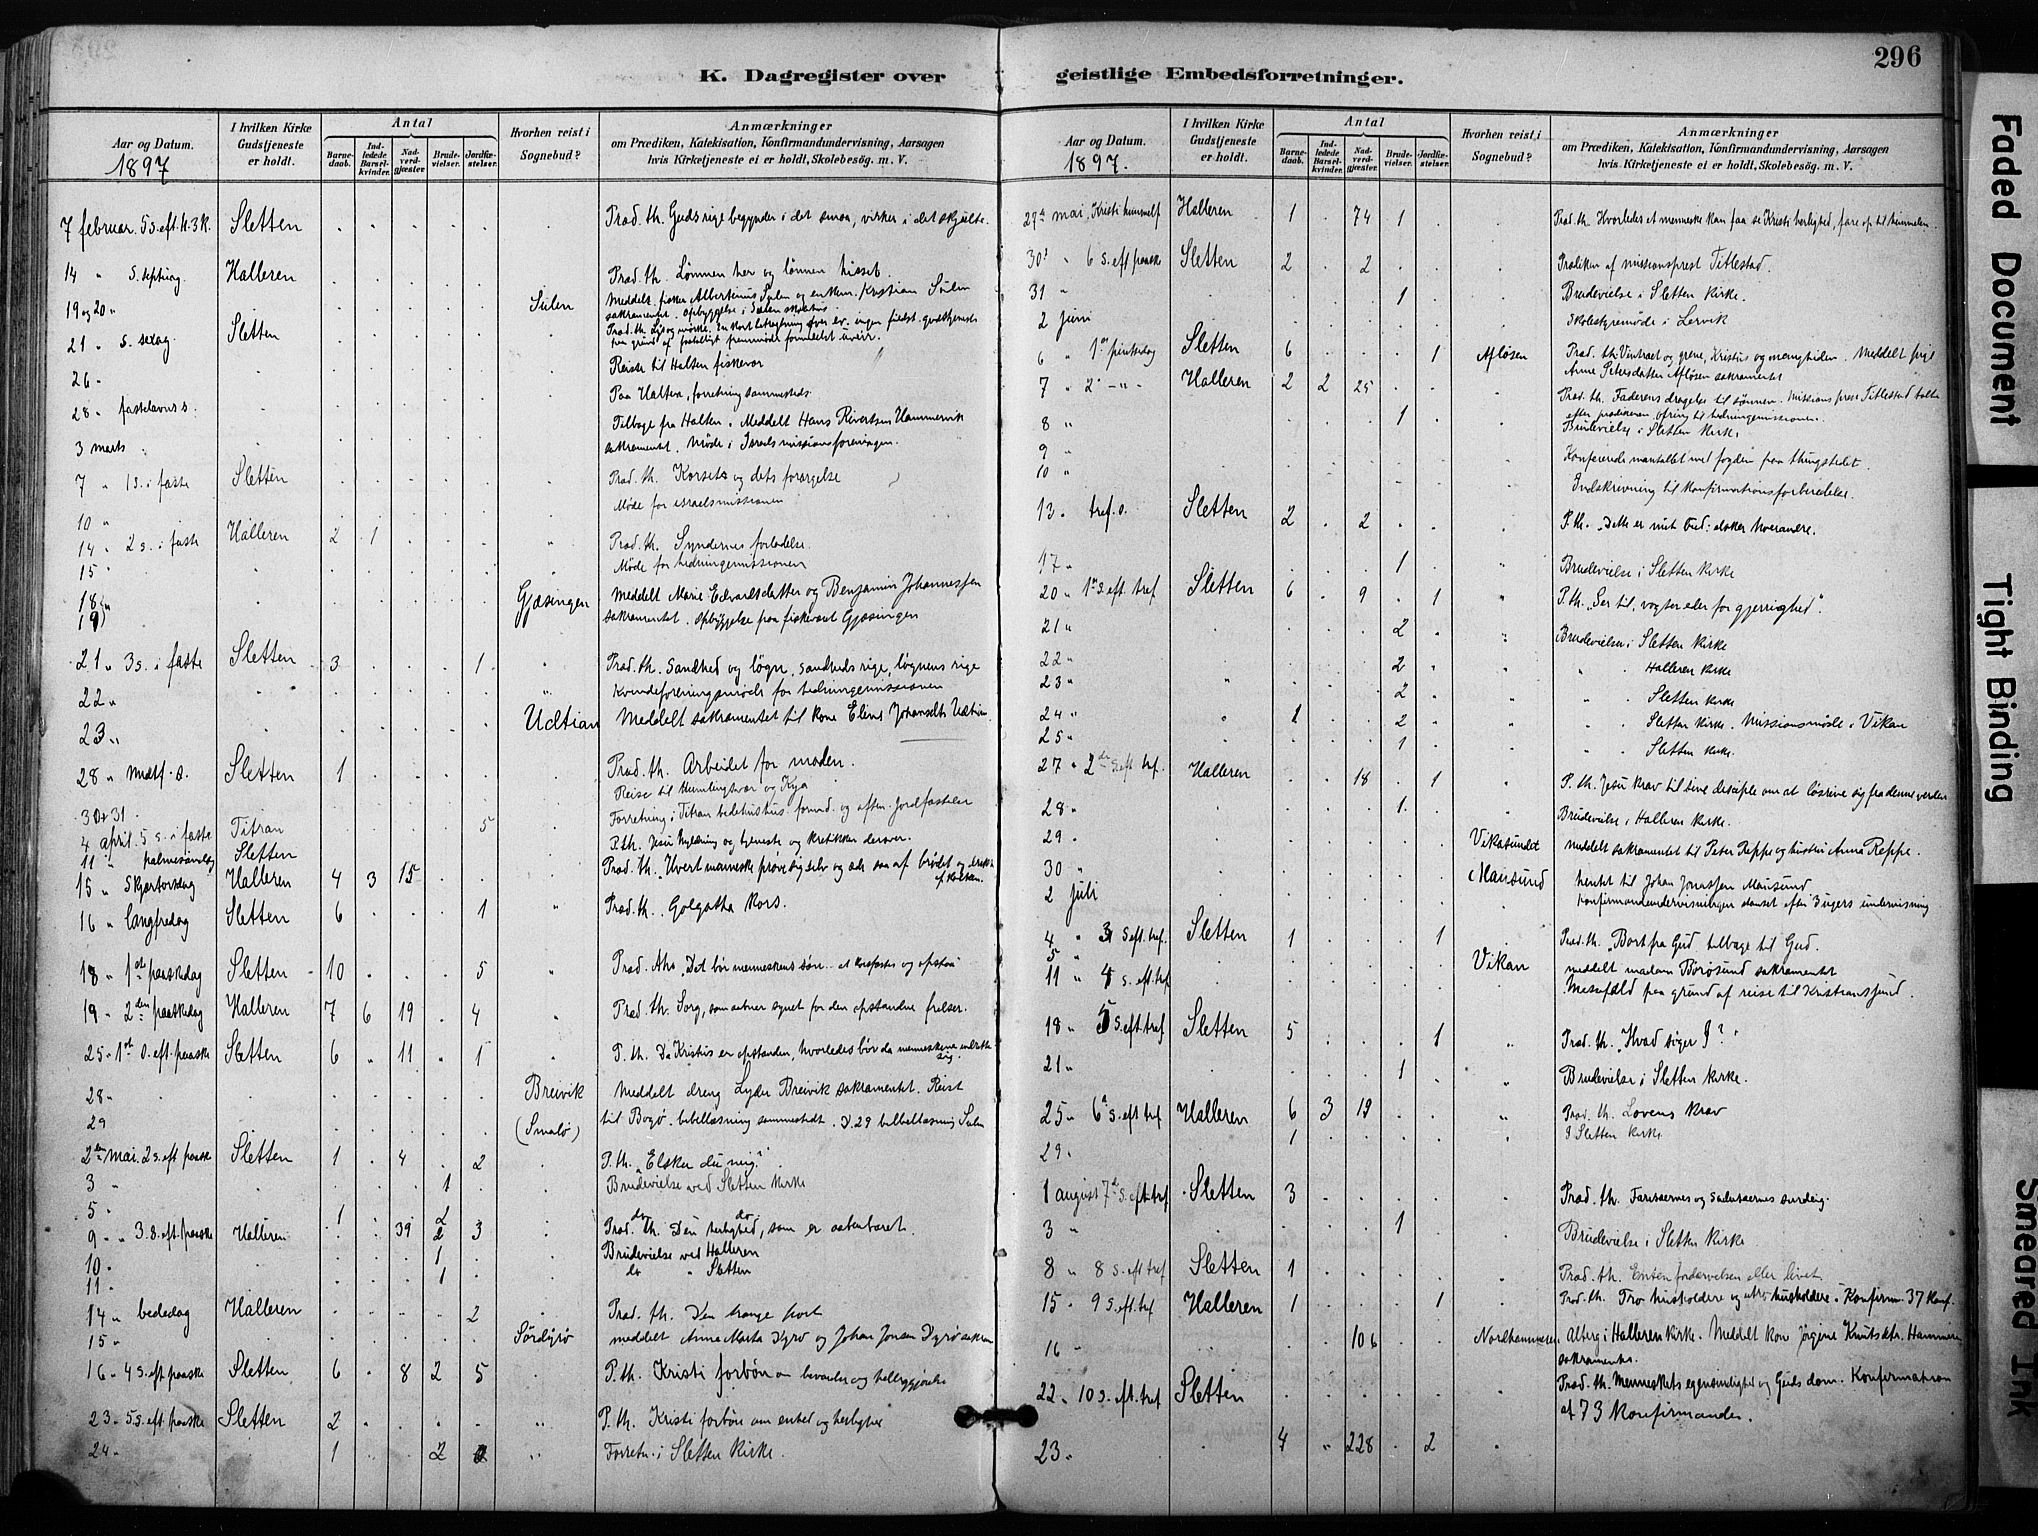 296
K. Dagregister over geistlige Embedsforretninger.
Aar og Datum.
1897
I hvilken Kirke Gudstjeneste er holdt.
Antal
Barnedaab.
Indledede Barselkvinder.
Nadverdgjæster.
Brudevielser.
Jordfæstelser.
Hvorhen reist i Sognebud?
Anmærkninger
om Prædiken, Katekisation, Konfirmandundervisning, Aarsagen
hvis Kirketjeneste ei er holdt, Skolebesøg. m. V.
7 februar. 5 s. eft. H. 3 K. Sletten Præd. th. Guds rige begynder i det smaa, virker i det skjulte.
14 " S. septuag. Halleren Præd. th. Lønnen her og lønnen hisset.
19 og 20 " Sulen Meddelt fisker Albertinus Sulen og enkem. Kristian Sulen
sakramentet. Opbyggelse i Sulen skolehus
21 " S. sexag. Sletten
26 " Reiste til Halten fiskevær
28 " fastelavns s. Paa Halten, forretning sammesteds.
3 marts Tilbage fra Halten. Meddelt Hans Hammervik
sakramentet. Møde i Israelsmissionsforeningen.
7 " 1 s. i faste Sletten Præd. th. Korset og dets forargelse
10 " Møde for israelsmissionen
14 " 2 s. i faste Halleren 2 1 Præd. th. Syndernes forladelse.
15 " Møde for hedningemissionen
18 " Gjæsingen Meddelt Marie Edvardsdatter og Benjamin Johannessen
19 sakramentet. Opbyggelse paa fiskeværet Gjæsingen
21 " 3 s. i faste Sletten 3 1 Præd. th. Sandhed og løgn, sandheds rige, løgnens rige
22 " Kvindeforeningsmøde for hedningemissionen
23 " Udtian Meddelt sakramentet til kone Johansdtr Udtian
28 " Midtf. s. Sletten 1 Præd. th. Arbeidet for maden.
30 + 31 Reise til Humlingsvær og Kya
4 april 5 s. i faste Titran 5 Forretning i Titran bedehus
11 " palmesøndag Sletten P. th. Jesu hyldning og tjeneste og kritikken derover.
15 " Skjærtorsdag Halleren 4 3 15 Præd. th. "Hvert menneske prøve sig selv og æde saa af brødet og drikke
af kalken.
16 " langfredag Sletten 6 1 Præd. th. Golgatha kors.
18 " 1ste paaskedag Sletten 10 5 Præd. "Det bør menneskens søn at korsfæstes og opstaa"
19 " 2den paaskedag Halleren 7 6 19 4 Præd. th. Sorg, som aabner synet for den opstandne frelser.
25 " 1ste s. eft. paaske Sletten 6 " 11 " 1 P. th. Da Kristus er opstanden, hvorledes bør da menneskene indrette
sig.
28 " Breivik Meddelt dreng Lyder Breivik sakramentet. Reist
29 (Smalø) til Bogø. bibellæsning sammestedt. D. 29 bibellæsning Sulen
2den mai. 2 s. eft. paaske Sletten 1 4 2 P. th. "Elsker du mig?"
3 " 1 Brudevielse ved Sletten Kirke
5 " 1 2 do do
9 " 3. s. eft. paaske Halleren 39 2 3 Præd. th. Den herlighed, som er aabenbaret.
10 " 1 Brudevielse ved Halleren
11 " 1 do " Sletten
14 " bededag Halleren 2 Præd. th. Den trange port
15 " Sørdyrø meddelt Anna Marta Dyrø og Johan Jonsen Dyrø
16 " 4 s. eft. paaske Sletten 6 8 2 5 P. th. Kristi forbøn om bevarelse og helliggjørelse
23 " 5 s. eft. paaske Sletten 2 P. th. Kristi forbøn om enhed og herlighed
24 " 1 2 Forretn. i Sletten Kirke.
Aar og Datum.
1897.
I hvilken Kirke Gudstjeneste er holdt.
Antal
Barnedaab.
Indledede Barselkvinder.
Nadverdgjæster.
Brudevielser.
Jordfæstelser.
Hvorhen reist i Sognebud?
Anmærkninger
om Prædiken, Katekisation, Konfirmandundervisning, Aarsagen
hvis Kirketjeneste ei er holdt, Skolebesøg. m. V.
27de mai, Kristi himmelf Halleren 1 74 1 Præd. th. Hvorledes et menneske kan faa se Kristi herlighed, fare op til himmelen.
30 " 6 s. eft. paaske Sletten 2 2 Prædiken af missionsprest Titlestad.
31 " 1 Brudevielse i Sletten Kirke.
2 juni Skolestyremøde i Lervik
6 " 1ste pintsedag Sletten 6 1 Afløsen Præd. th. Vintræet og grene, Kristus og menigheden. Meddelt pige
Anne Petersdatter Afløsen sakramentet
7 " 2 - " - Halleren 2 2 25 Præd. th. Faderens dragelse til sønnen. Missionsprest Titlestad talte
efter prædikenen. ofring til hedningemissionen.
8 " 1 Brudevielse i Sletten Kirke.
9 " Konfererede mantallet med fogden paa thingstedet.
10 " Indskrivning til konfirmationsforberedelse.
13 " tref. s. Sletten 2 2 P. th. "Dette er mit bud: elsker hverandre.
17 " 1 Brudevielse i Sletten kirke
20 " 1ste s. eft. tref Sletten 6 9 1 P. th. "Ser til, vogter eder for gjerrighed".
21 " 2 Brudevielse i Sletten Kirke
22 " 2 " Halleren Kirke
23 " 2 " Sletten Kirke
24 " 1 2 " Sletten Kirke. Missionsmøde i Vikan
25 " 1 " Sletten Kirke.
27 " 2den s. eft. tref. Halleren 18 1 P. th. Jesu krav til sine disciple om at løsrive sig fra denne verden
28 " 1 Brudevielse i Halleren Kirke.
29 " Vikasundet meddelt sakramentet til Peter Reppe og hustru Anna Reppe.
30 " Mausund hentet til Johan Jonassen Mausund
2 juli konfirmandundervisningen sluttet efter 3 ugers undervisning
4 " 3 s. eft. tref. Sletten 1 1 Præd. th. "Bort fra Gud tilbage til Gud.
5 " Vikan meddelt madam Børøsund sakramentet
11 " 4 s. eft. tref Messefald paa grund af reise til Kristianssund.
18 " 5 s. eft. tref Sletten 5 1 Præd. th. "Hvad søger I?"
21 " 1 Brudevielse i Sletten Kirke.
25 " 6 s. eft. tref Halleren 6 3 19 Præd. th. Lovens krav
29 " 1 I Sletten Kirke
1 august 7 s. eft. tref Sletten 3 Præd. th. Farisæernes og Saduccæernes surdeig.
3 " 1 Brudevielse i Sletten Kirke
8 " 8 s. eft. tref Sletten 1 Præd. th. Enten fordærvelsen eller livet
15 " 9 s. eft. tref Halleren 1 1 Præd. th. Tro husholdere og utro husholdere. Konfirm. 37 konf.
16 " 106 Nordhammeren Altergang i Halleren Kirke. Meddelt kone Jørgine Knutsdtr. Hammeren
sakramentet.
22 " 10 s. eft. tref Sletten Præd. th. Menneskets egensindighed og Guds dom. Konfirmation
af 73 Konfirmander.
23 " 4 " 228 2
Faded Document
Tight Binding
Smeared Ink